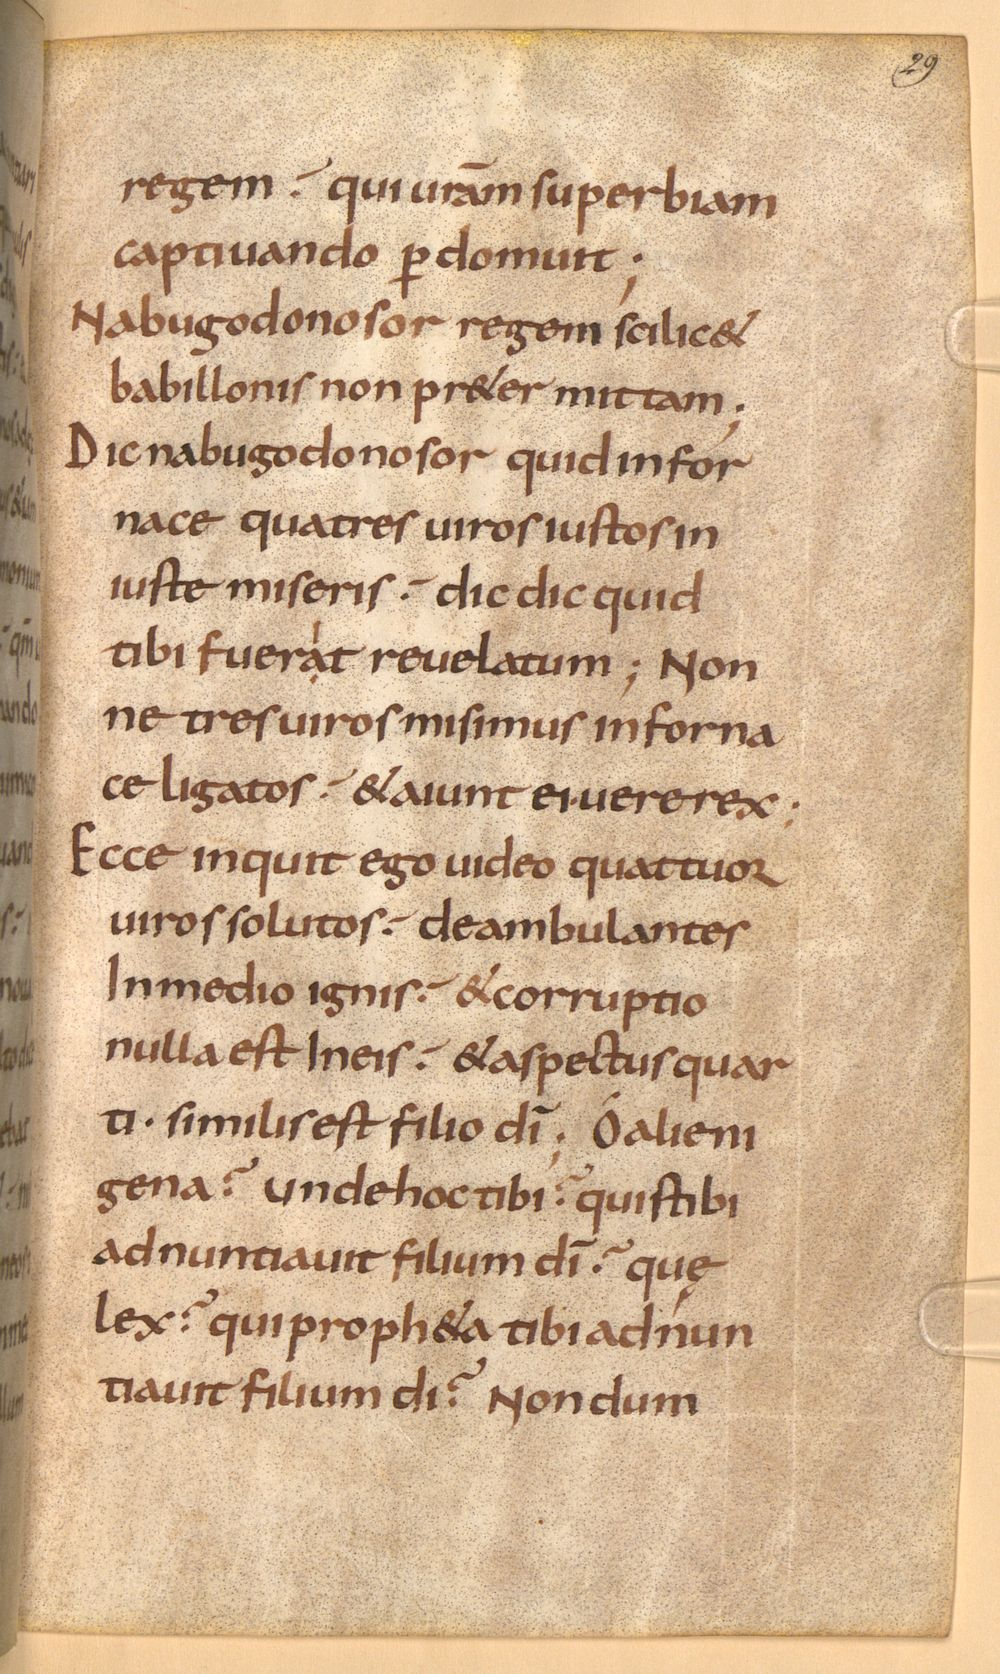 29
regem· qui urām superbiam
captiuando ꝑdomuit;
Nabugodonosor regem scilic&
babillonis non pr&ermittam;
Dic nabugodonosor quid in for
nace quatres uiros iustos in
iuste miseris· dic dic quid
tibi fuerat reuelatum; Non
ne tres uiros misimus in forna
ce ligatos· & aiunt ei· uere rex;
Ecce inquit ego uideo quattuor
uiros solutos· deambulantes
In medio ignis· & corruptio
nulla est In eis· & aspectus quar
ti· similis est filio dī; Ó alieni
gena? unde hoc tibi? quis tibi
adnuntiauit filium dī? quę
lex? qui proph&a tibi adnun
tiauit filium di? Non dum